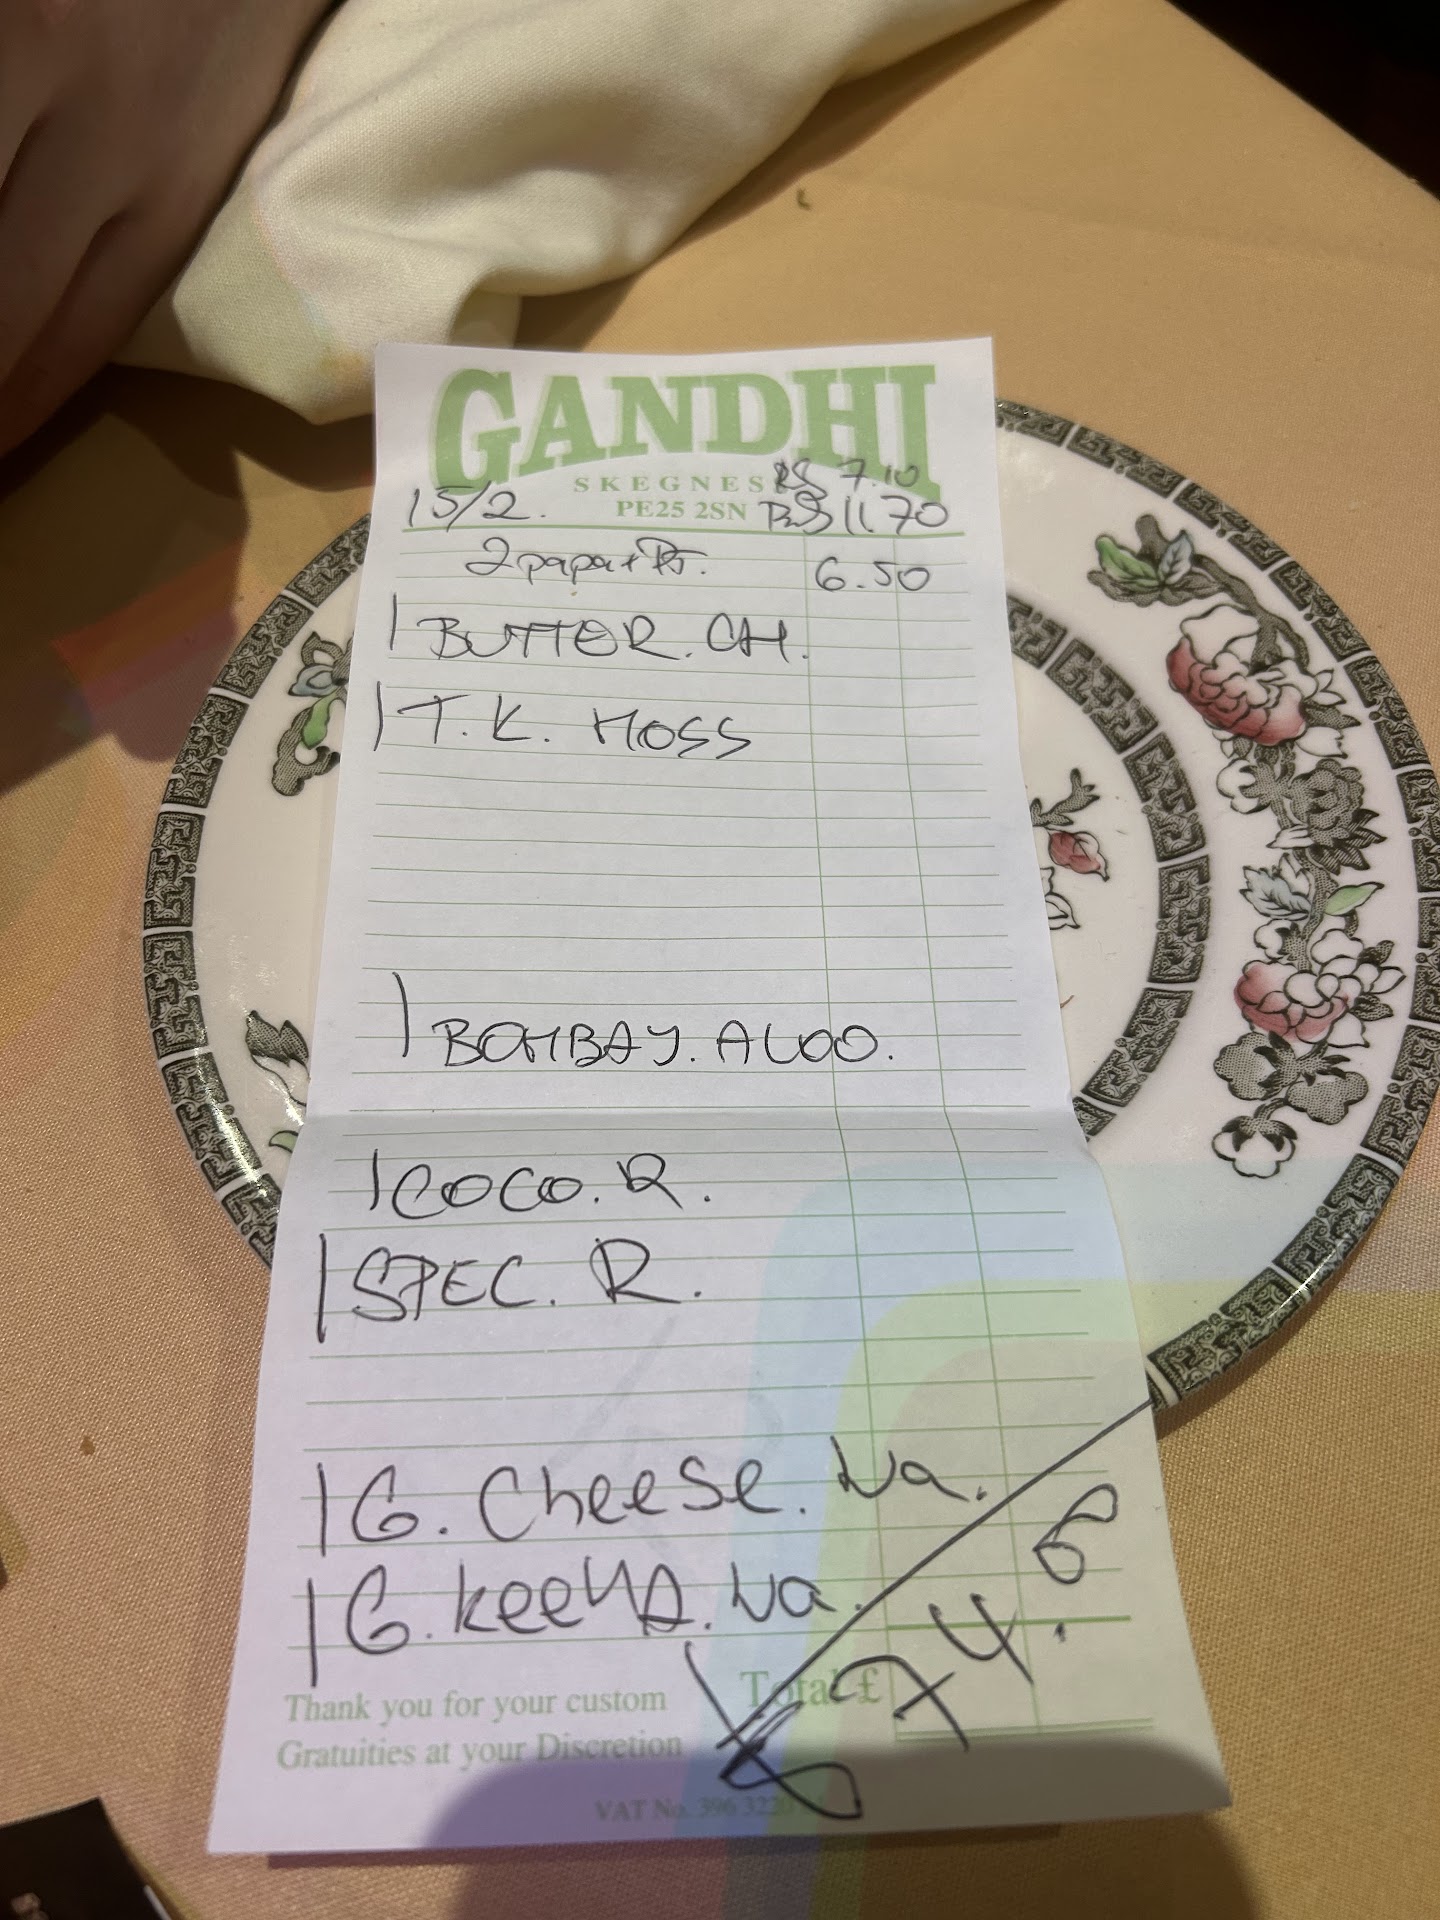 GANDHI
SKEGNES 7.10
15/2. PE25 2SN 11.70
2 papa + 6.50
1 BUTTER. CH.
1 T. K. MOSS
1 BOMBAY. ALOO.
1 COCO. R.
1 SPEC. R.
1 G. Cheese. Na.
1 G. Keema. Na.
Total £ 74.6
Thank you for your custom
Gratuities at your Discretion
VAT No. 396 322